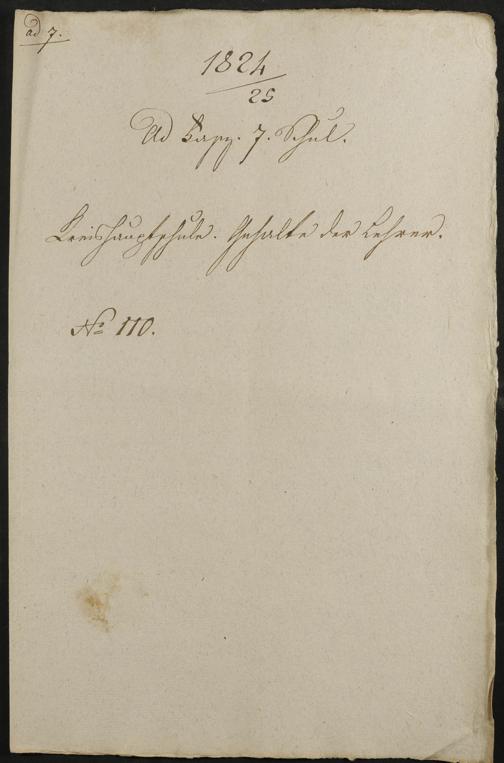 ad 7.
1824
25
Ad Kapp. 7. Schul.
Kreishauptschule. Gehalte der Lehrer.
No 110.